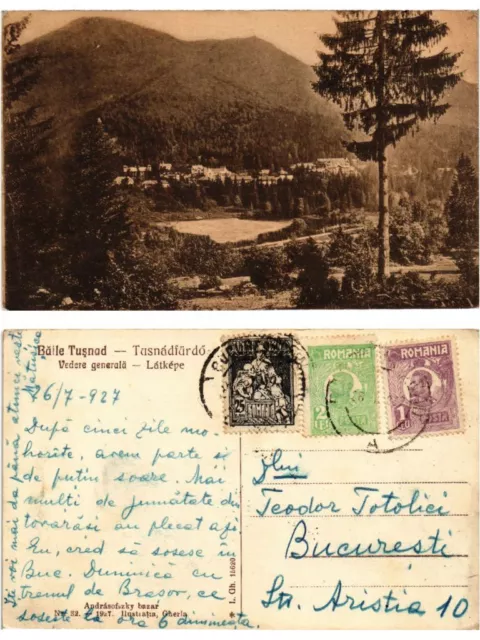 Băile Tușnad — Tusnádfürdő
Vedere generală — Látképe
26/7 - 927
După cinci zile mo-
horîte, avem parte și
de puțin soare. Mai
mulți de jumătate din
tovarăși au plecat azi
Eu, cred să sosesc în
Buc. Duminică cu
trenul de Brașov, ce
sosește la ora 6 dimineața.
Te voi mai da până atunci
Andrásofszky bazar
No. 32. 1927. Ilustrația, Gherla
* L. Gh. 15620
ROMANIA
ROMANIA
1 LEU
Dlui
Teodor Totolici
București
Str. Aristia 10